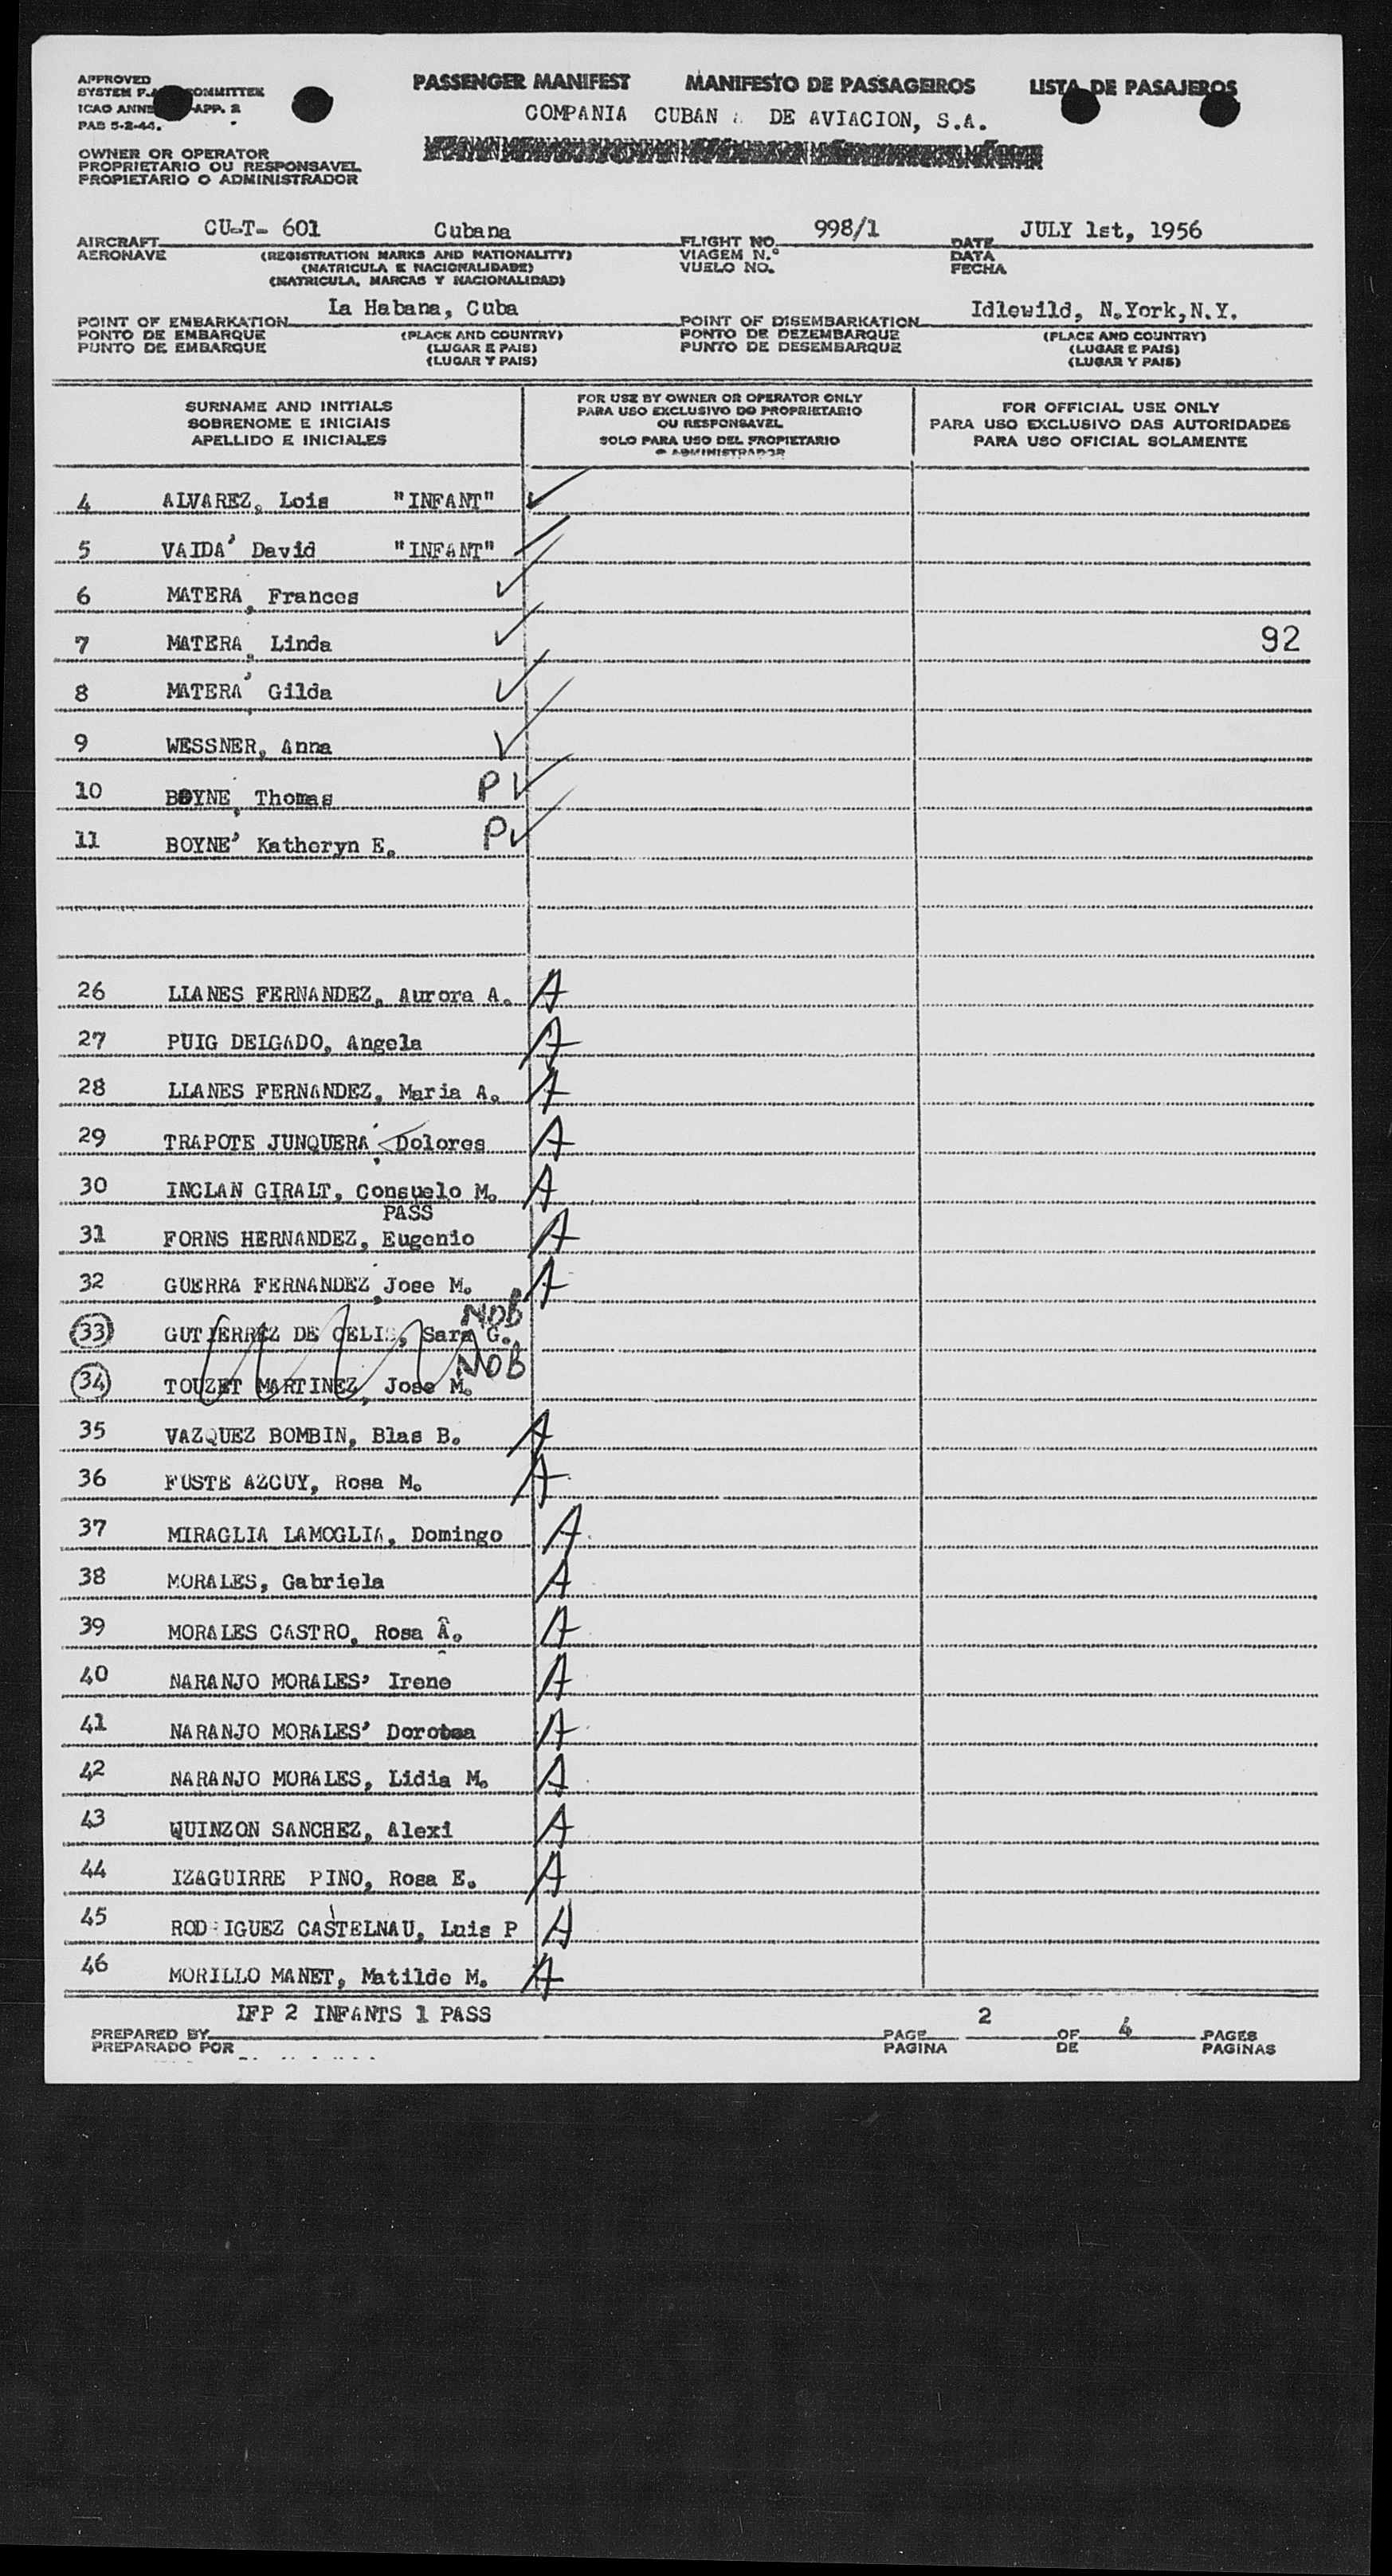 APPROVED
SYSTEM COMMITTEE
ICAO APP. 2
PAB 5-2-44.
PASSENGER MANIFEST MANIFESTO DE PASSAGEIROS LISTA DE PASAJEROS
COMPANIA CUBAN DE AVIACION, S.A.
OWNER OR OPERATOR
PROPRIETARIO OU RESPONSAVEL
PROPIETARIO O ADMINISTRADOR
AIRCRAFT CU-T- 601 Cubana FLIGHT NO. 998/1 DATE JULY 1st, 1956
AERONAVE (REGISTRATION MARKS AND NATIONALITY) VIAGEM N.º DATA
(MATRICULA E NACIONALIDADE) VUELO NO. FECHA
(MATRICULA, MARCAS Y NACIONALIDAD)
POINT OF EMBARKATION La Habana, Cuba POINT OF DISEMBARKATION Idlewild, N.York,N.Y.
PONTO DE EMBARQUE (PLACE AND COUNTRY) PONTO DE DEZEMBARQUE (PLACE AND COUNTRY)
PUNTO DE EMBARQUE (LUGAR E PAIS) PUNTO DE DESEMBARQUE (LUGAR E PAIS)
(LUGAR Y PAIS) (LUGAR Y PAIS)
SURNAME AND INITIALS
SOBRENOME E INICIAIS
APELLIDO E INICIALES
FOR USE BY OWNER OR OPERATOR ONLY
PARA USO EXCLUSIVO DO PROPRIETARIO
OU RESPONSAVEL
SOLO PARA USO DEL PROPIETARIO
O ADMINISTRADOR
FOR OFFICIAL USE ONLY
PARA USO EXCLUSIVO DAS AUTORIDADES
PARA USO OFICIAL SOLAMENTE
4 ALVAREZ, Lois "INFANT"
5 VAIDA, David "INFANT"
6 MATERA, Frances
7 MATERA, Linda 92
8 MATERA, Gilda
9 WESSNER, Anna
10 BOYNE, Thomas P
11 BOYNE, Katheryn E. P
26 LLANES FERNANDEZ, Aurora A. A
27 PUIG DELGADO, Angela A
28 LLANES FERNANDEZ, Maria A. A
29 TRAPOTE JUNQUERA, Dolores A
30 INCLAN GIRALT, Consuelo M. A
PASS
31 FORNS HERNANDEZ, Eugenio A
32 GUERRA FERNANDEZ, Jose M. A
33 GUTIERREZ DE CELIS, Sara G. NOB
34 TOUZET MARTINEZ, Jose M. NOB
35 VAZQUEZ BOMBIN, Blas B. A
36 FUSTE AZCUY, Rosa M. A
37 MIRAGLIA LAMOGLIA, Domingo A
38 MORALES, Gabriela A
39 MORALES CASTRO, Rosa A. A
40 NARANJO MORALES, Irene A
41 NARANJO MORALES, Dorotea A
42 NARANJO MORALES, Lidia M. A
43 QUINZON SANCHEZ, Alexi A
44 IZAGUIRRE PINO, Rosa E. A
45 RODRIGUEZ CASTELNAU, Luis P A
46 MORILLO MANET, Matilde M. A
IFP 2 INFANTS 1 PASS
PREPARED BY PAGE 2 OF 4 PAGES
PREPARADO POR PAGINA DE PAGINAS